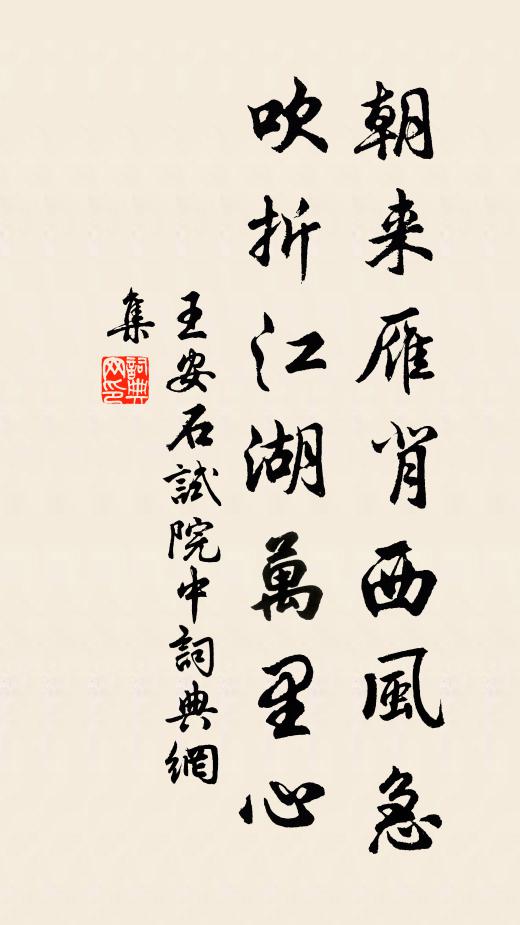 朝来雁背西風急
吹折江湖萬里心
王安石試院中詞典網
集
詞典网印